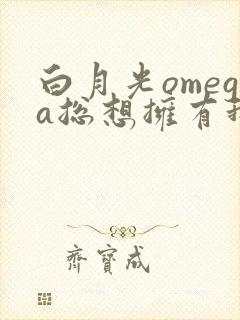 白月光omeg
a総想擁有
齊寶成